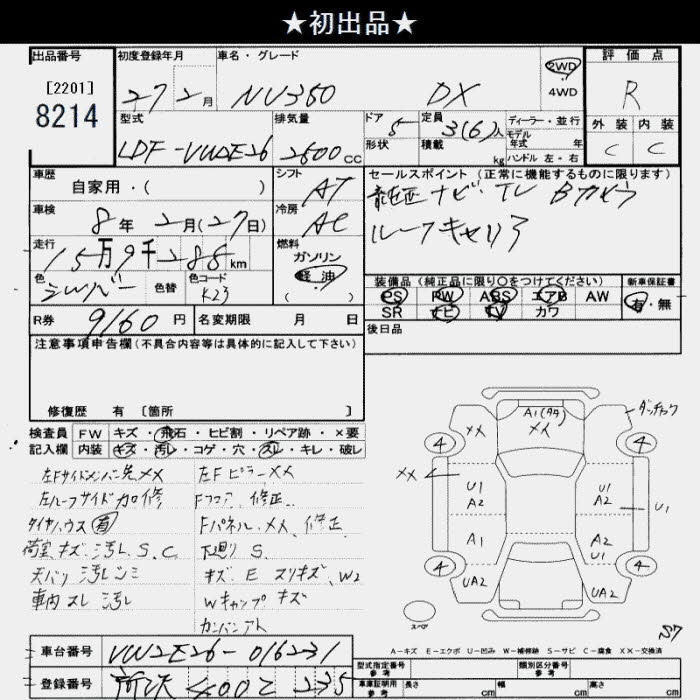 ★初出品★
出品番号
[2201]
8214
初度登録年月
27 2月
車名・グレード
NV350 DX
2WD
4WD
評価点
R
外装 内装
C C
型式
LDF-VW2E26
排気量
2500CC
ドア
5
形状
定員
3(6)人
積載
kg
ディーラー・並行
モデル
年式 年
ハンドル 左・右
車歴
自家用・( )
シフト
AT
セールスポイント(正常に機能するものに限ります)
ナビ TV Bカメラ
ルーフキャリア
車検
8年 2月(27日)
冷房
AC
走行
15万9千288km
燃料
ガソリン
軽油
( )
色
シルバー
色替
色コード
K23
装備品(純正品に限り○をつけてください)
PS PW ABS エアB AW
SR ナビ TV カワ
新車保証書
有・無
R券
9160円
名変期限 月 日
後日品
注意事項申告欄(不具合内容等は具体的に記入して下さい)
修復歴 有 [箇所 ]
検査員 FW キズ・飛石・ヒビ割・リペア跡・×要
記入欄 内装 キズ・汚レ・コゲ・穴・スレ・キレ・破レ
左Fサイドメンバー先XX
左ルーフサイド加修
タイヤハウス 有
荷室 キズ 汚レ S、C
天バリ 汚レ シミ
車内 スレ 汚レ
左FピラーXX
Fフロア 修正
Fパネル XX、修正
下廻り S
キズ E スリキズ、W2
Wキャップ キズ
A1(タタ)
XX
XX
4 4
XX
U1
A2
U1
A2
U1
A1
A2
U1
4 4
UA2
UA2
スペア
A-キズ E-エクボ U-凹み W-補修跡 S-サビ C-腐食 XX-交換済
車台番号
VW2E26-016231
登録番号
所沢 400 235
型式指定番号
類別区分番号
参考
車庫証明用
参考
長さ cm 幅 cm 高さ cm